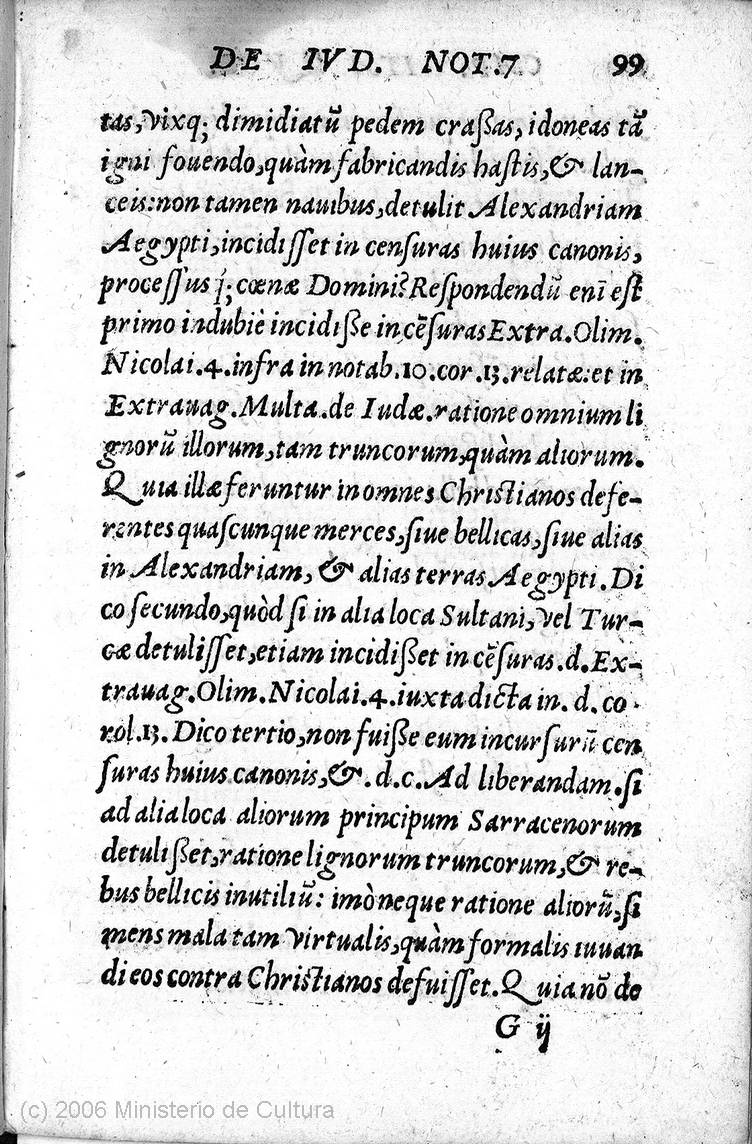 DE IVD. NOT.7 99
tas, vixq; dimidiatū pedem craßas, idoneas tā
igni fouendo, quàm fabricandis hastis, & lan-
ceis: non tamen nauibus, detulit Alexandriam
Aegypti, incidiſſet in cenſuras huius canonis,
proceſſus q́; cœnæ Domini? Reſpondendū enī eſt
primo indubiè incidiße in cēſuras Extra. Olim.
Nicolai .4. infra in notab.10. cor. 13. relatæ: et in
Extrauag. Multa. de Iudæ. ratione omnium li
gnorū illorum, tam truncorum, quàm aliorum.
Quia illæ feruntur in omnes Chriſtianos defe-
rentes quaſcunque merces, ſiue bellicas, ſiue alias
in Alexandriam, & alias terras Aegypti. Di
co ſecundo, quòd ſi in alia loca Sultani, vel Tur-
cæ detuliſſet, etiam incidißet in cēſuras .d. Ex-
trauag. Olim. Nicolai .4. iuxta dicta in .d. co
rol. 13. Dico tertio, non fuiße eum incurſurū cen
ſuras huius canonis, & .d.c. Ad liberandam. ſi
ad alia loca aliorum principum Sarracenorum
detulißet, ratione lignorum truncorum, & re-
bus bellicis inutiliū: imò neque ratione aliorū, ſi
mens mala tam virtualis, quàm formalis iuuan
di eos contra Chriſtianos defuiſſet. Quia nō de
G ij
(c) 2006 Ministerio de Cultura